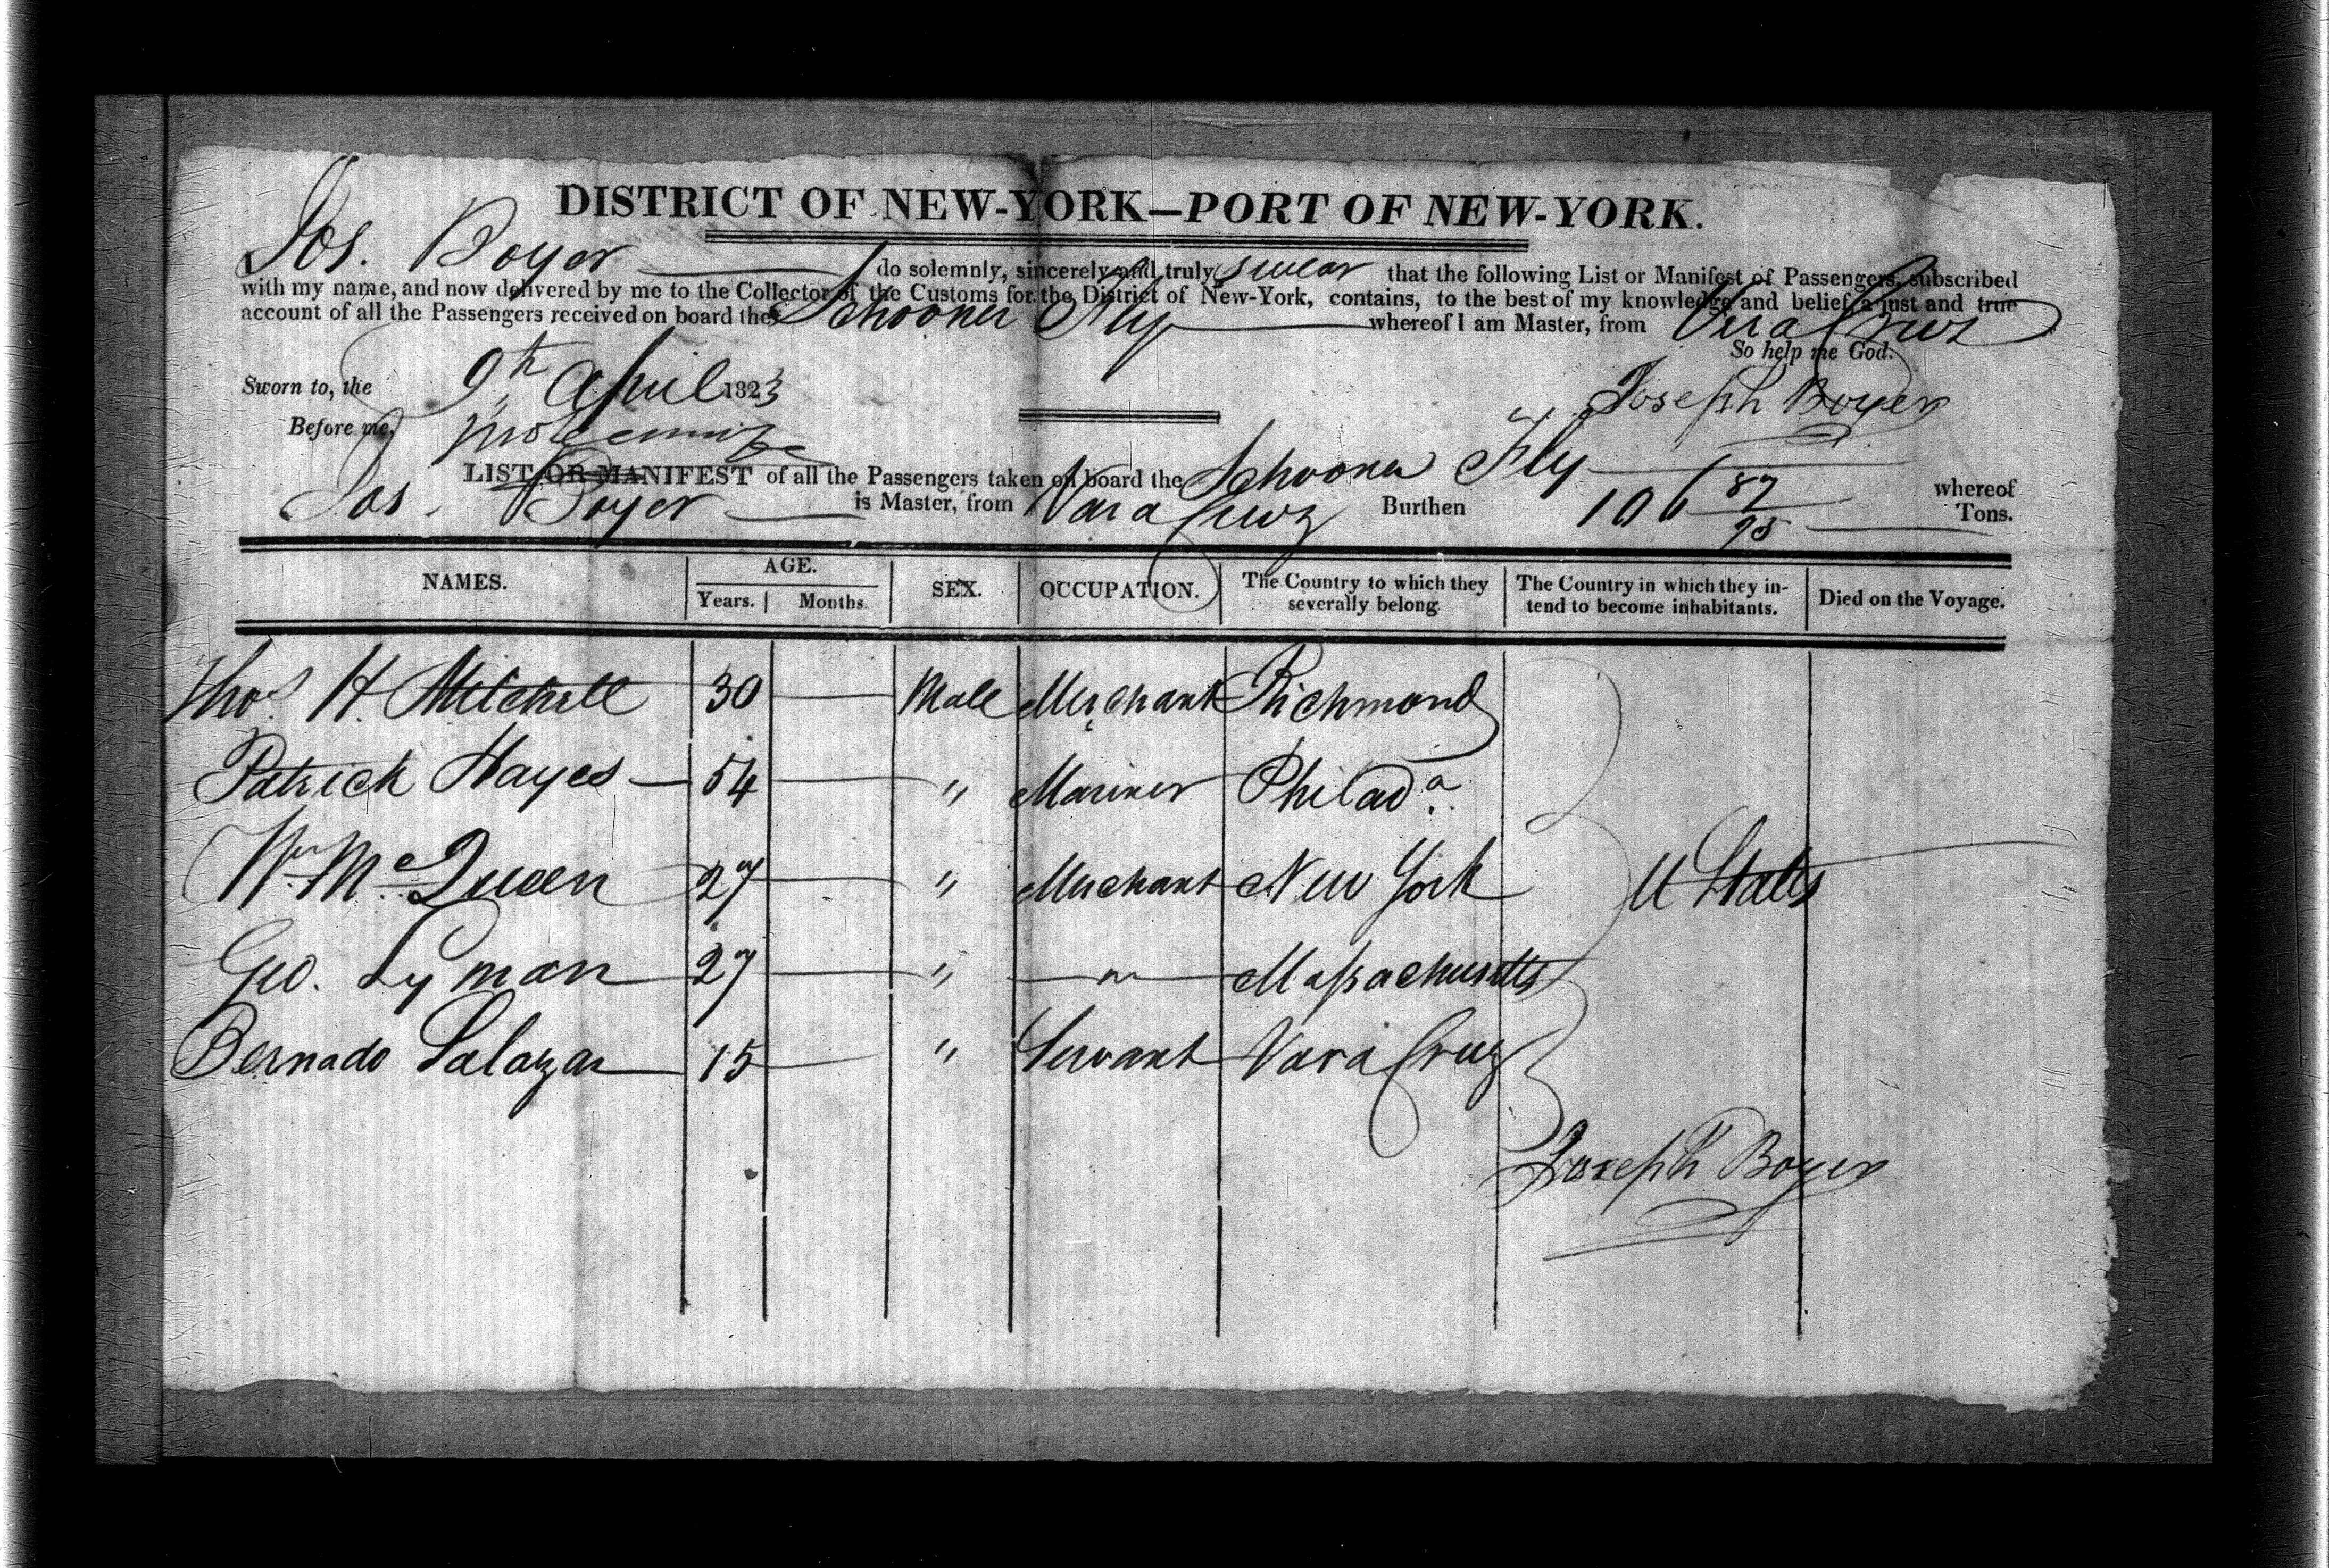 DISTRICT OF NEW-YORK—PORT OF NEW-YORK.
Jos. Boyer do solemnly, sincerely and truly swear that the following List or Manifest of Passengers, subscribed
with my name, and now delivered by me to the Collector of the Customs for the District of New-York, contains, to the best of my knowledge and belief, a just and true
account of all the Passengers received on board the Schooner Fly whereof I am Master, from Vera Cruz
So help me God.
Sworn to, the 9th April 1823
Joseph Boyer
Before me,
LIST OR MANIFEST of all the Passengers taken on board the Schooner Fly whereof
Jos. Boyer is Master, from Vara Cruz Burthen 106 87/95 Tons.
NAMES. AGE. Years. Months. SEX. OCCUPATION. The Country to which they severally belong. The Country in which they intend to become inhabitants. Died on the Voyage.
Thos. H. Mitchell 30 — Male Merchant Richmond
Patrick Hayes — 54 — " Mariner Philada.
Wm. McQueen 27 — " Merchant New York U States
Geo. Lyman 27 — " — " — Massachusetts
Bernado Salazar 15 — " Servant Vara Cruz
Joseph Boyer